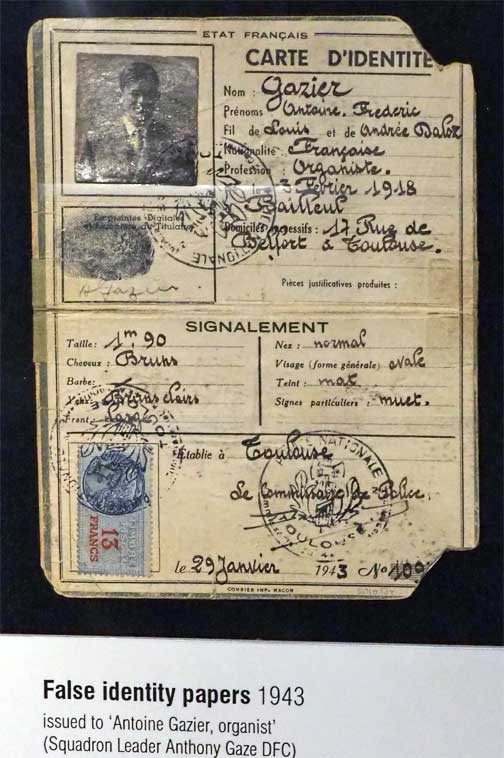 ETAT FRANÇAIS
CARTE D'IDENTITE
Nom : Gazier
Prénoms Antoine. Frederic
Fil de Louis et de Andrée
Nationalité Française
Profession : Organiste.
le 3 Février 1918
Bailleul
Domiciles successifs : 17 Rue de
Belfort à Toulouse.
Empreintes Digitales
Pièces justificatives produites :
SIGNALEMENT
Taille : 1m 90
Cheveux : Bruns
Barbe :
Nez : normal
Visage (forme générale) ovale
Teint : mat
Signes particuliers : muet.
Etablie à Toulouse
Le Commissaire de Police.
POLICE NATIONALE
TOULOUSE
13
FRANCS
le 29 Janvier 1943 No 109
COMBIER IMP. MACON
False identity papers 1943
issued to 'Antoine Gazier, organist'
(Squadron Leader Anthony Gaze DFC)